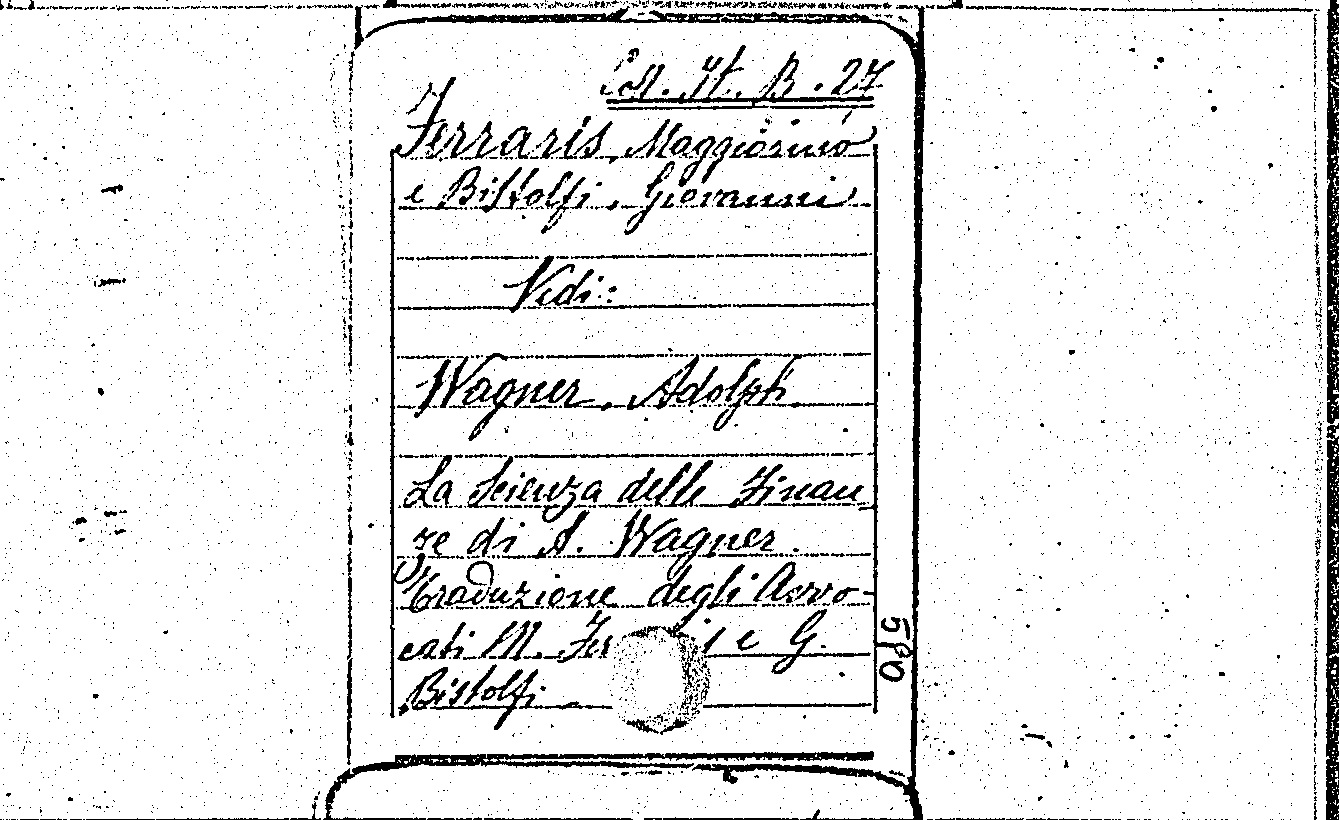 Coll. It. B. 27
Ferraris, Maggiorino
e Bistolfi, Giovanni
Vedi:
Wagner, Adolph
La Scienza delle Finan
ze di A. Wagner.
Traduzione degli Avvo-
cati M. Fer is e G.
Bistolfi.
580